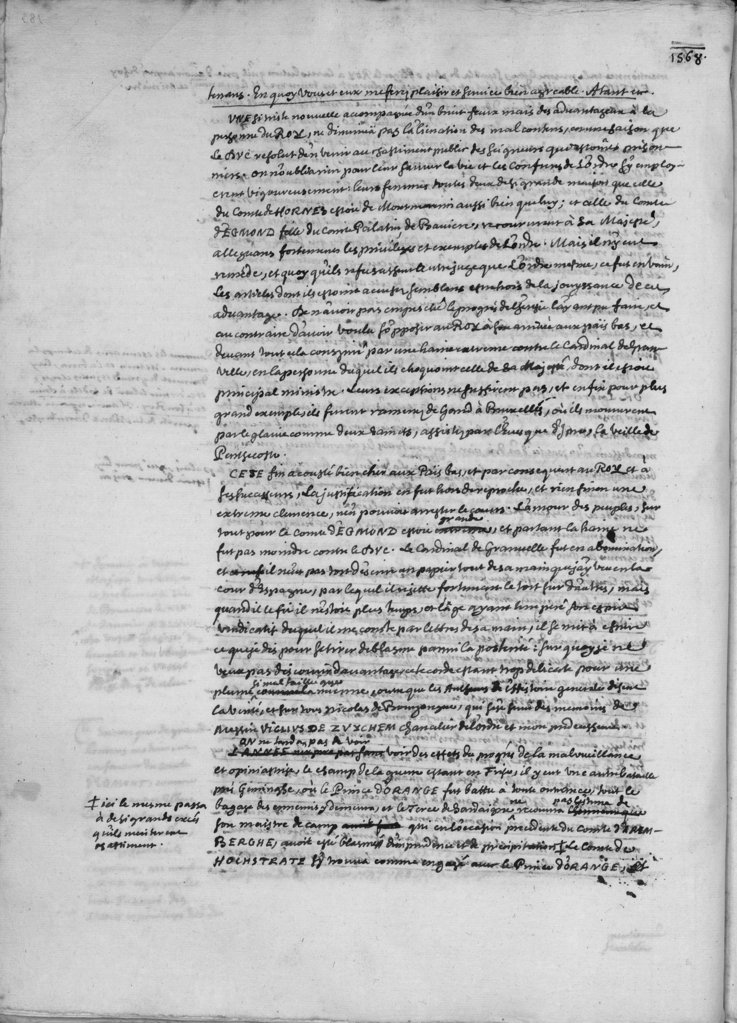 1568.
tenans. En quoy Vous et eux me ferez plaisir et service bien agreable. Atant etc.
UNE si miste nouvelle acompagnée d'un bruit faux mais desadvantageux à la
personne du ROY, ne diminua pas l'alienation des mal contens, outre raison que
le DUC resolut d'en venir au chastiment public des Seigneurs que estoient prison-
niers. on n'oublia rien pour leur sauver la vie et les Confreres de L'Ordre s'y employ-
erent vigoureusement: leurs femmes toutes deux de si grande maison que celle
du Comte de HORNES estoit de Montmorancy aussi bien que luy, et celle du Comte
d'EGMOND fille du Comte Palatin de Baviere, recoururent à Sa Majesté,
alleguans fortement les privileges et exemples de L'Ordre. Mais il n'y eut
remede, et quoy qu'ils refusassent le autre juge que L'Ordre mesme, ce fut en vain,
Les articles dont ils estoient accusez semblans estre hors de la jouyssance de ce
advantage. De n'avoir pas empesché le progrés de l'heresie l'ayant pu faire, et
au contraire d'avoir voulu s'opposer au ROY à son arrivée aux pais bas, et
devant tout cela conspiré par une haine extreme contre le Cardinal de Gran-
velle, en la personne duquel ils choquoient celle de Sa Majesté, dont il estoit
principal ministre. Leurs exceptions ne suffirent pas, et enfin pour plus
grand exemple, ils furent ramenez de Gand à Bruxelles, où ils moururent
par le glaive comme deux saincts, assistez par l'Evesque d'Ipres, la veille de
Pentecoste.
CETE fin a cousté bien cher aux Païs bas, et par consequent au ROY et à
ses successeurs, La justification en fut hors de reproche, et rien sinon une
extreme clemence, n'en pouvoit arrester le cours. L'amour des peuples, sur
tout pour le Comte d'EGMOND estoit grande, et partant la haine ne
fut pas moindre contre le DUC. Le Cardinal de Granvelle fut en abomination,
et
cour d'Espagne, par lequel il rejette fortement le tort sur d'autres, mais
quand il le fit il n'estoit plus temps, et l'âge ayant temperé son esprit
vindicatif duquel il me conste par lettres de sa main, il se mit à escrire
ce que je dis pour se tirer de blasme parmi la posterité: sur quoy je ne
veux pas discourir davantage, cete corde estant trop delicate pour une
plume si mal taillée que la mienne, outre que les Autheurs de l'Histoire generale disent
la verité, et sur tous Nicolas de Bourgongne, qui s'est servi des memoires de
Messire VIGLIUS DE ZUYCHEM chancelier de l'ordre et mon predecesseur.
ON ne tarda pas à voir des effets du progrés de la malveillance
et opiniastrise, le champ de la guerre estant en Frise, il y eut une autre bataille
pres Geminghe, où le Prince D'ORANGE fut battu à toute outrance, tout le
bagage des ennemis y demeura, et le Terce de Sardaigne
son maistre de camp qui en l'occasion precedente du Comte d'AREM-
BERGHE, avoit esté blasmé d'imprudence et de precipitation ‡ Le Comte de
HOCHSTRATE s'y trouva comme engagé avec le Prince D'ORANGE, et
‡ ici le mesme passa
à de si grands excés
qu'ils meriterent
chastiment.